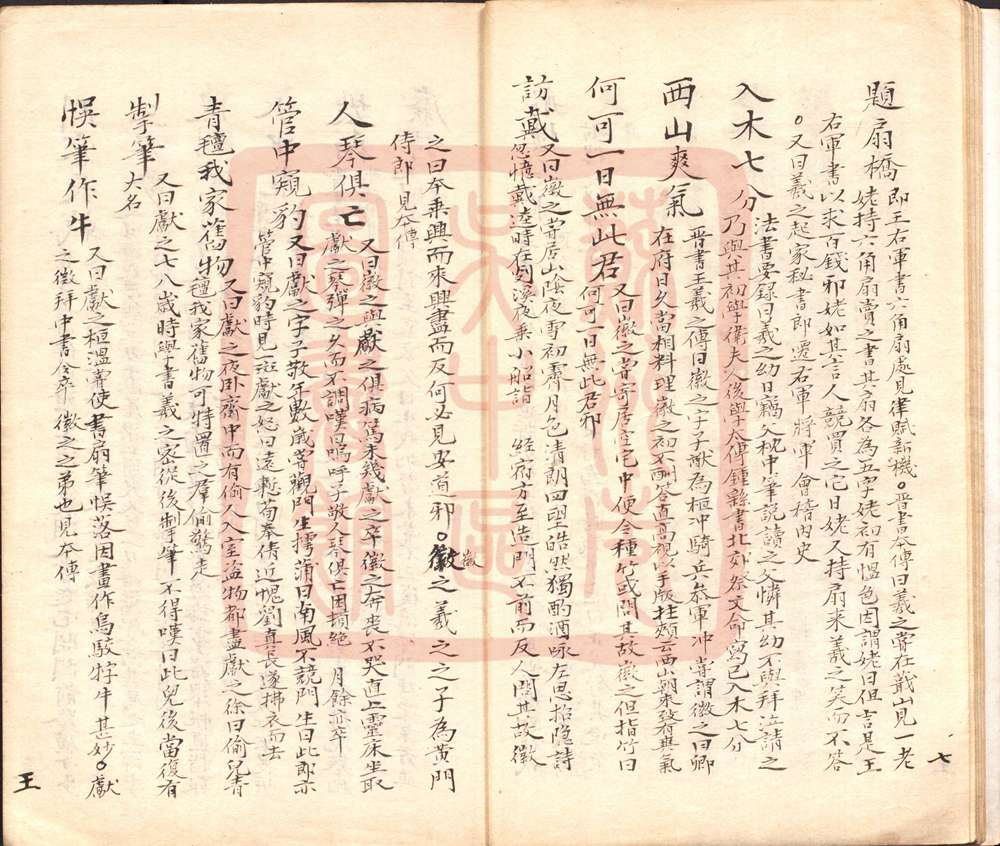 題扇橋 即王右軍書六角扇處見律賦新機。晋書本傳曰羲之嘗在蕺山見一老
姥持六角扇賣之書其扇各為五字姥初有慍色因謂姥曰但言是王
右軍書以求百錢邪姥如其言人競買之它日姥又持扇来羲之笑而不答
。又曰羲之起家秘書郎遷右軍將軍會稽内史
入木七分 法書要録曰羲之幼日竊父枕中筆說讀之父憐其幼不與拜泣請之
乃與其初學衛夫人後學太傅鍾繇書北郊祭文命寫已入木七分
西山爽氣 晋書王羲之傳曰徽之字子猷為桓冲騎兵叅軍冲嘗謂徽之曰卿
在府日久當相料理徽之初不酬答直高視以手版拄頰云西山朝来致有爽氣
何可一日無此君 又曰徽之嘗寄居空宅中便令種竹或問其故徽之但指竹曰
何可一日無此君邪
訪戴 又曰徽之嘗居山陰夜雪初霽月色清朗四望皓然獨酌酒咏左思招隐詩
忽憶戴逵時在剡溪夜乗小船詣 経宿方至造門不前而反人問其故徽
之曰本乗興而来興盡而反何必見安道邪。徽之羲之之子為黄門
侍郎見本傳
人琴俱亡 又曰徽之與獻之俱病篤未幾獻之卒徽之奔喪不哭直上靈床坐取
獻之琴彈之久而不調嘆曰嗚呼子敬人琴俱亡因損絶 月餘亦卒
管中窺豹 又曰獻之字子敬年數歲嘗觀門生摴蒲曰南風不競門生曰此郎亦
管中窺豹時見一斑獻之怒曰遠慙荀奉倩近愧劉真長遂拂衣而去
青氊我家舊物 又曰獻之夜卧齋中而有偷人入室盜物都盡獻之徐曰偷兒青
氊我家舊物可特置之羣偷驚走
掣筆 又曰獻之七八歲時學書羲之密從後掣筆不得嘆曰此兒後當復有
大名
悞筆作牛 又曰獻之桓溫嘗使書扇筆悞落因畫作烏駁牸牛甚妙。獻
之徵拜中書令卒 徽之之弟也見本傳
七
王